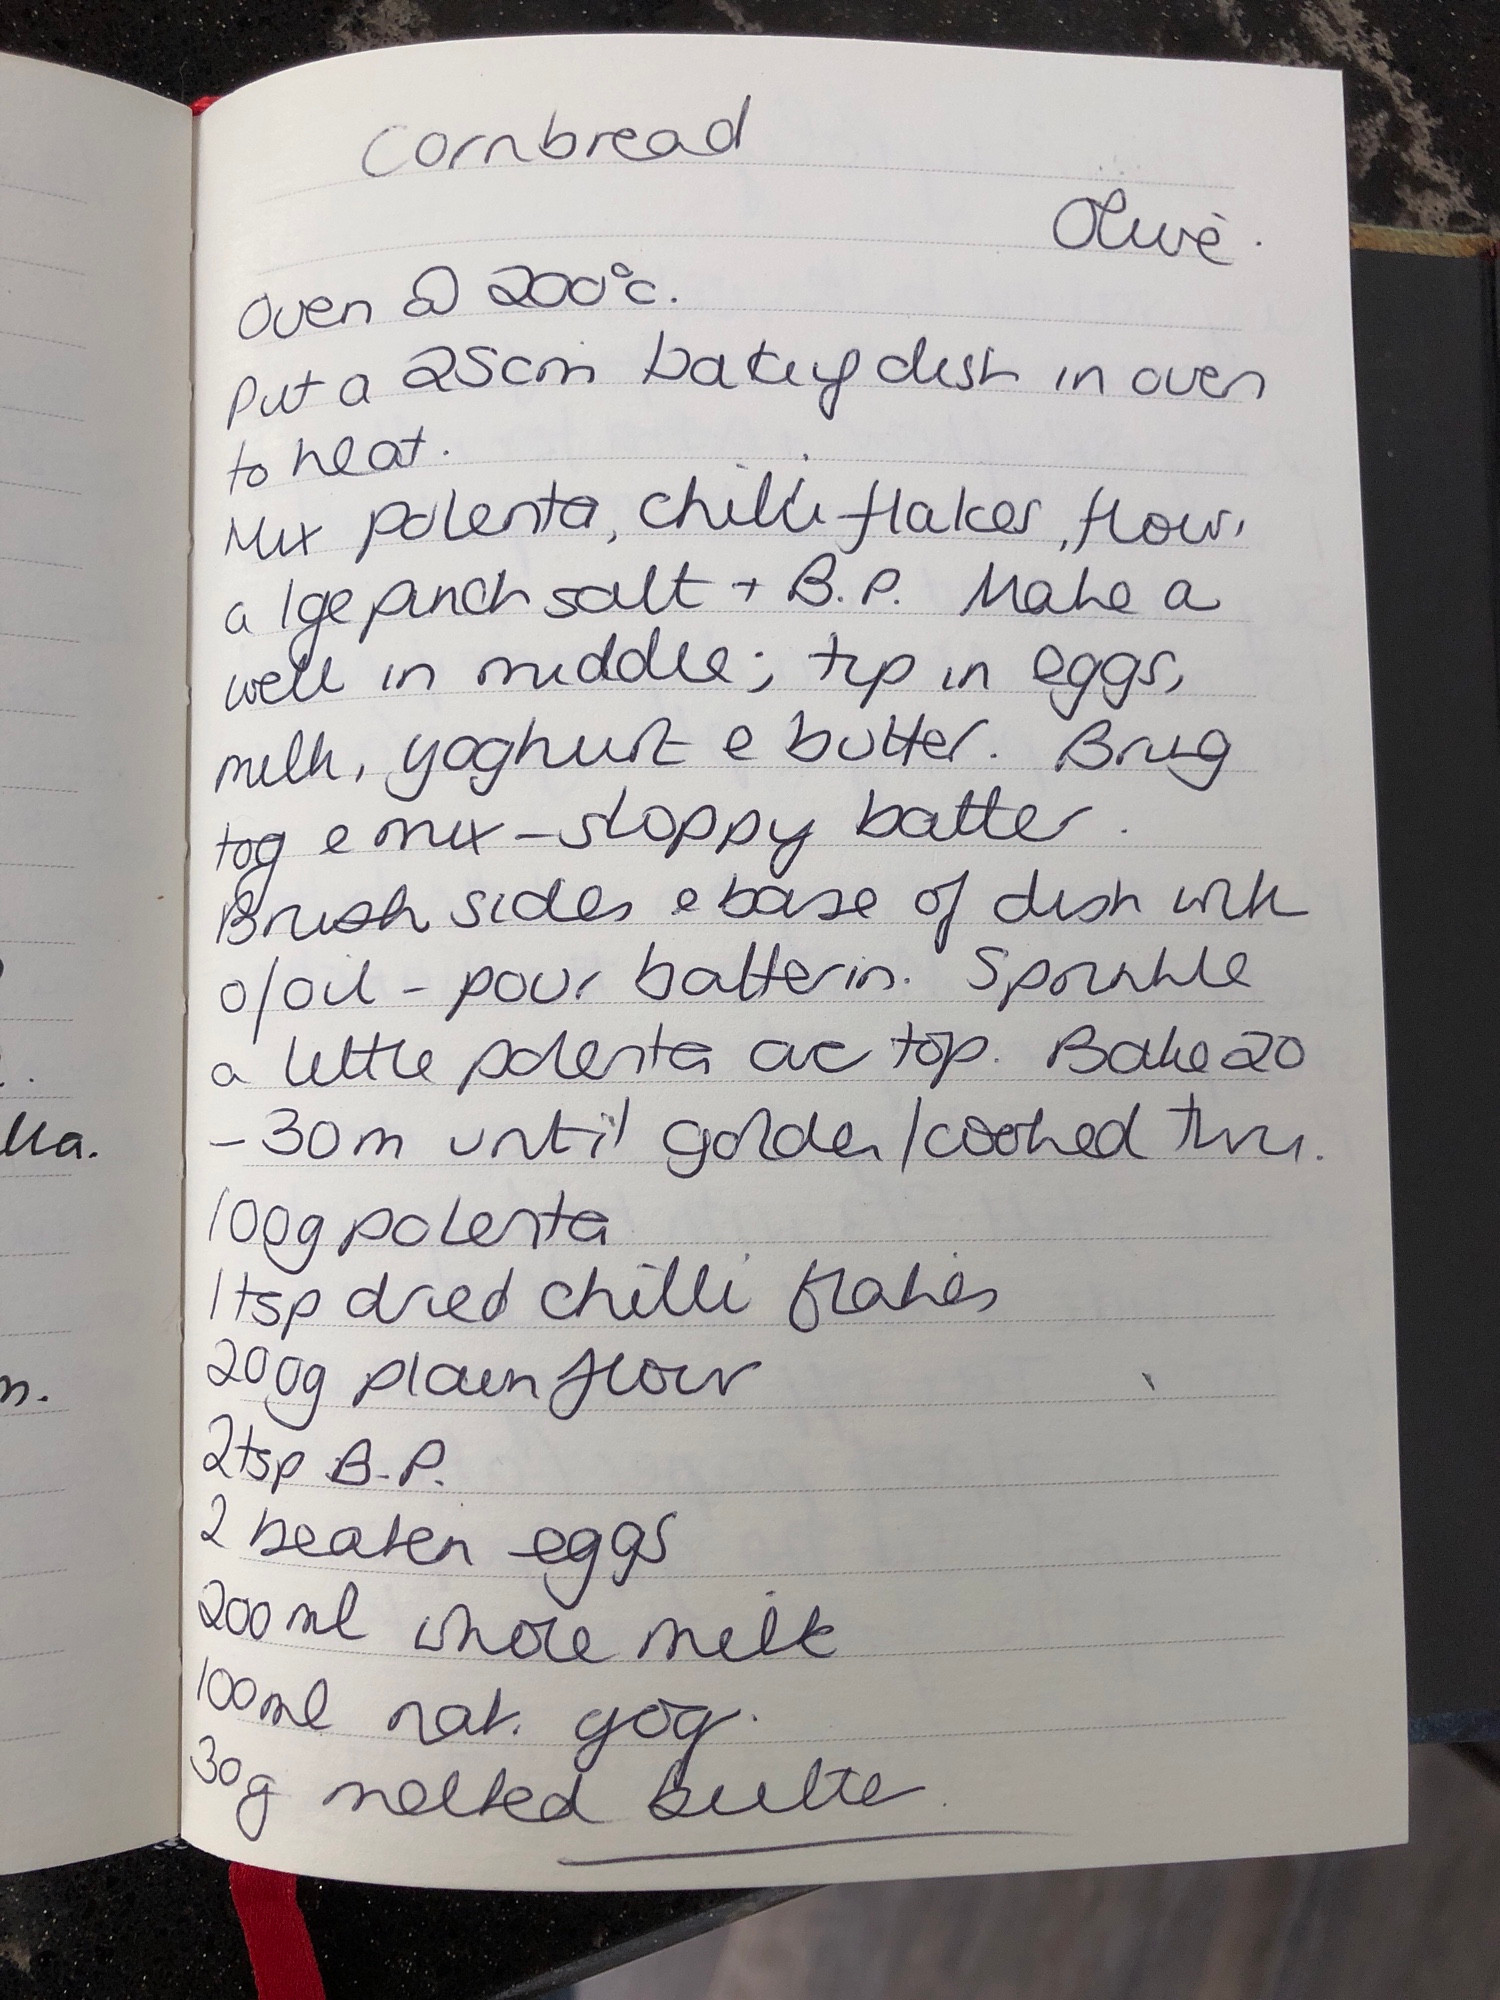 Cornbread
Olive.
Oven @ 200°c.
Put a 25cm baking dish in oven
to heat.
Mix polenta, chilli flakes, flour,
a lge pinch salt + B.P. Make a
well in middle; tip in eggs,
milk, yoghurt e butter. Bring
tog e mix – sloppy batter.
Brush sides e base of dish with
o/oil – pour batter in. Sprinkle
a little polenta ac top. Bake 20
– 30m until golden/cooked thru.
100g polenta
1 tsp dried chilli flakes
200g plain flour
2tsp B.P.
2 beaten eggs
200ml whole milk
100ml nat. yog.
30g melted butter.
lla.
n.